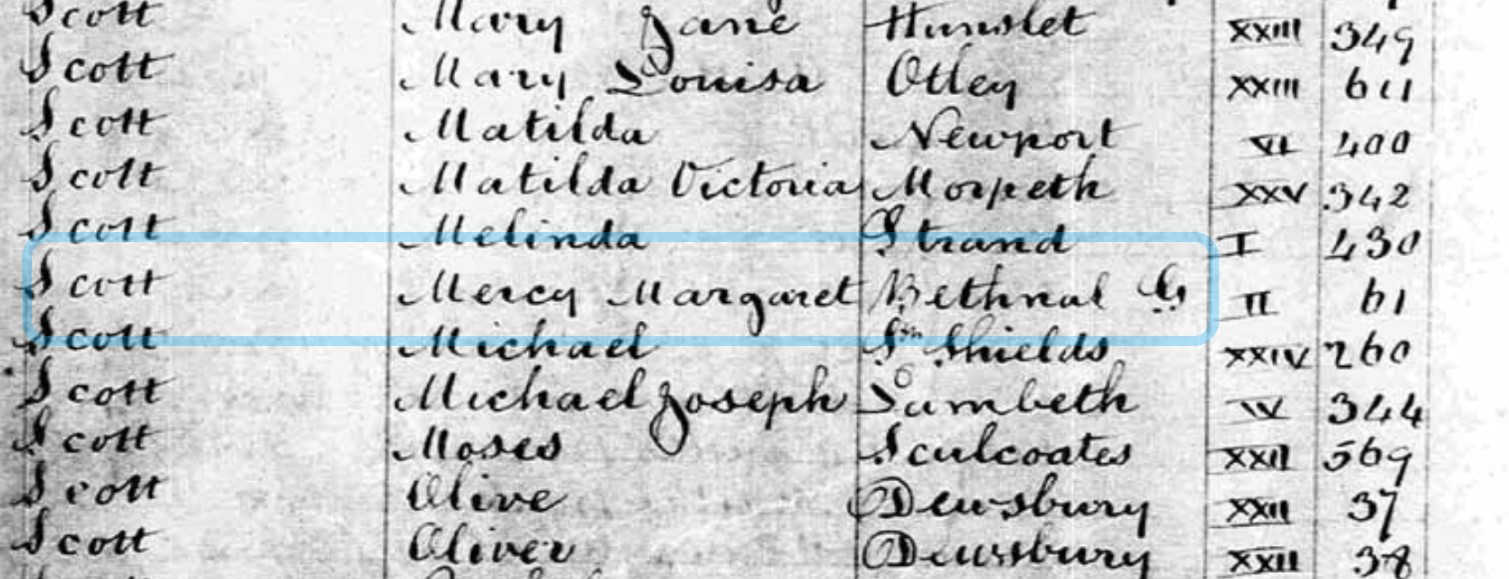 Scott Mary Jane Hunslet XXIII 349
Scott Mary Louisa Otley XXIII 611
Scott Matilda Newport VI 400
Scott Matilda Victoria Morpeth XXV 342
Scott Melinda Strand I 430
Scott Mercy Margaret Bethnal G II 61
Scott Michael Sth Shields XXIV 260
Scott Michael Joseph Lambeth IV 344
Scott Moses Sculcoates XXII 569
Scott Olive Dewsbury XXII 37
Scott Oliver Dewsbury XXII 38